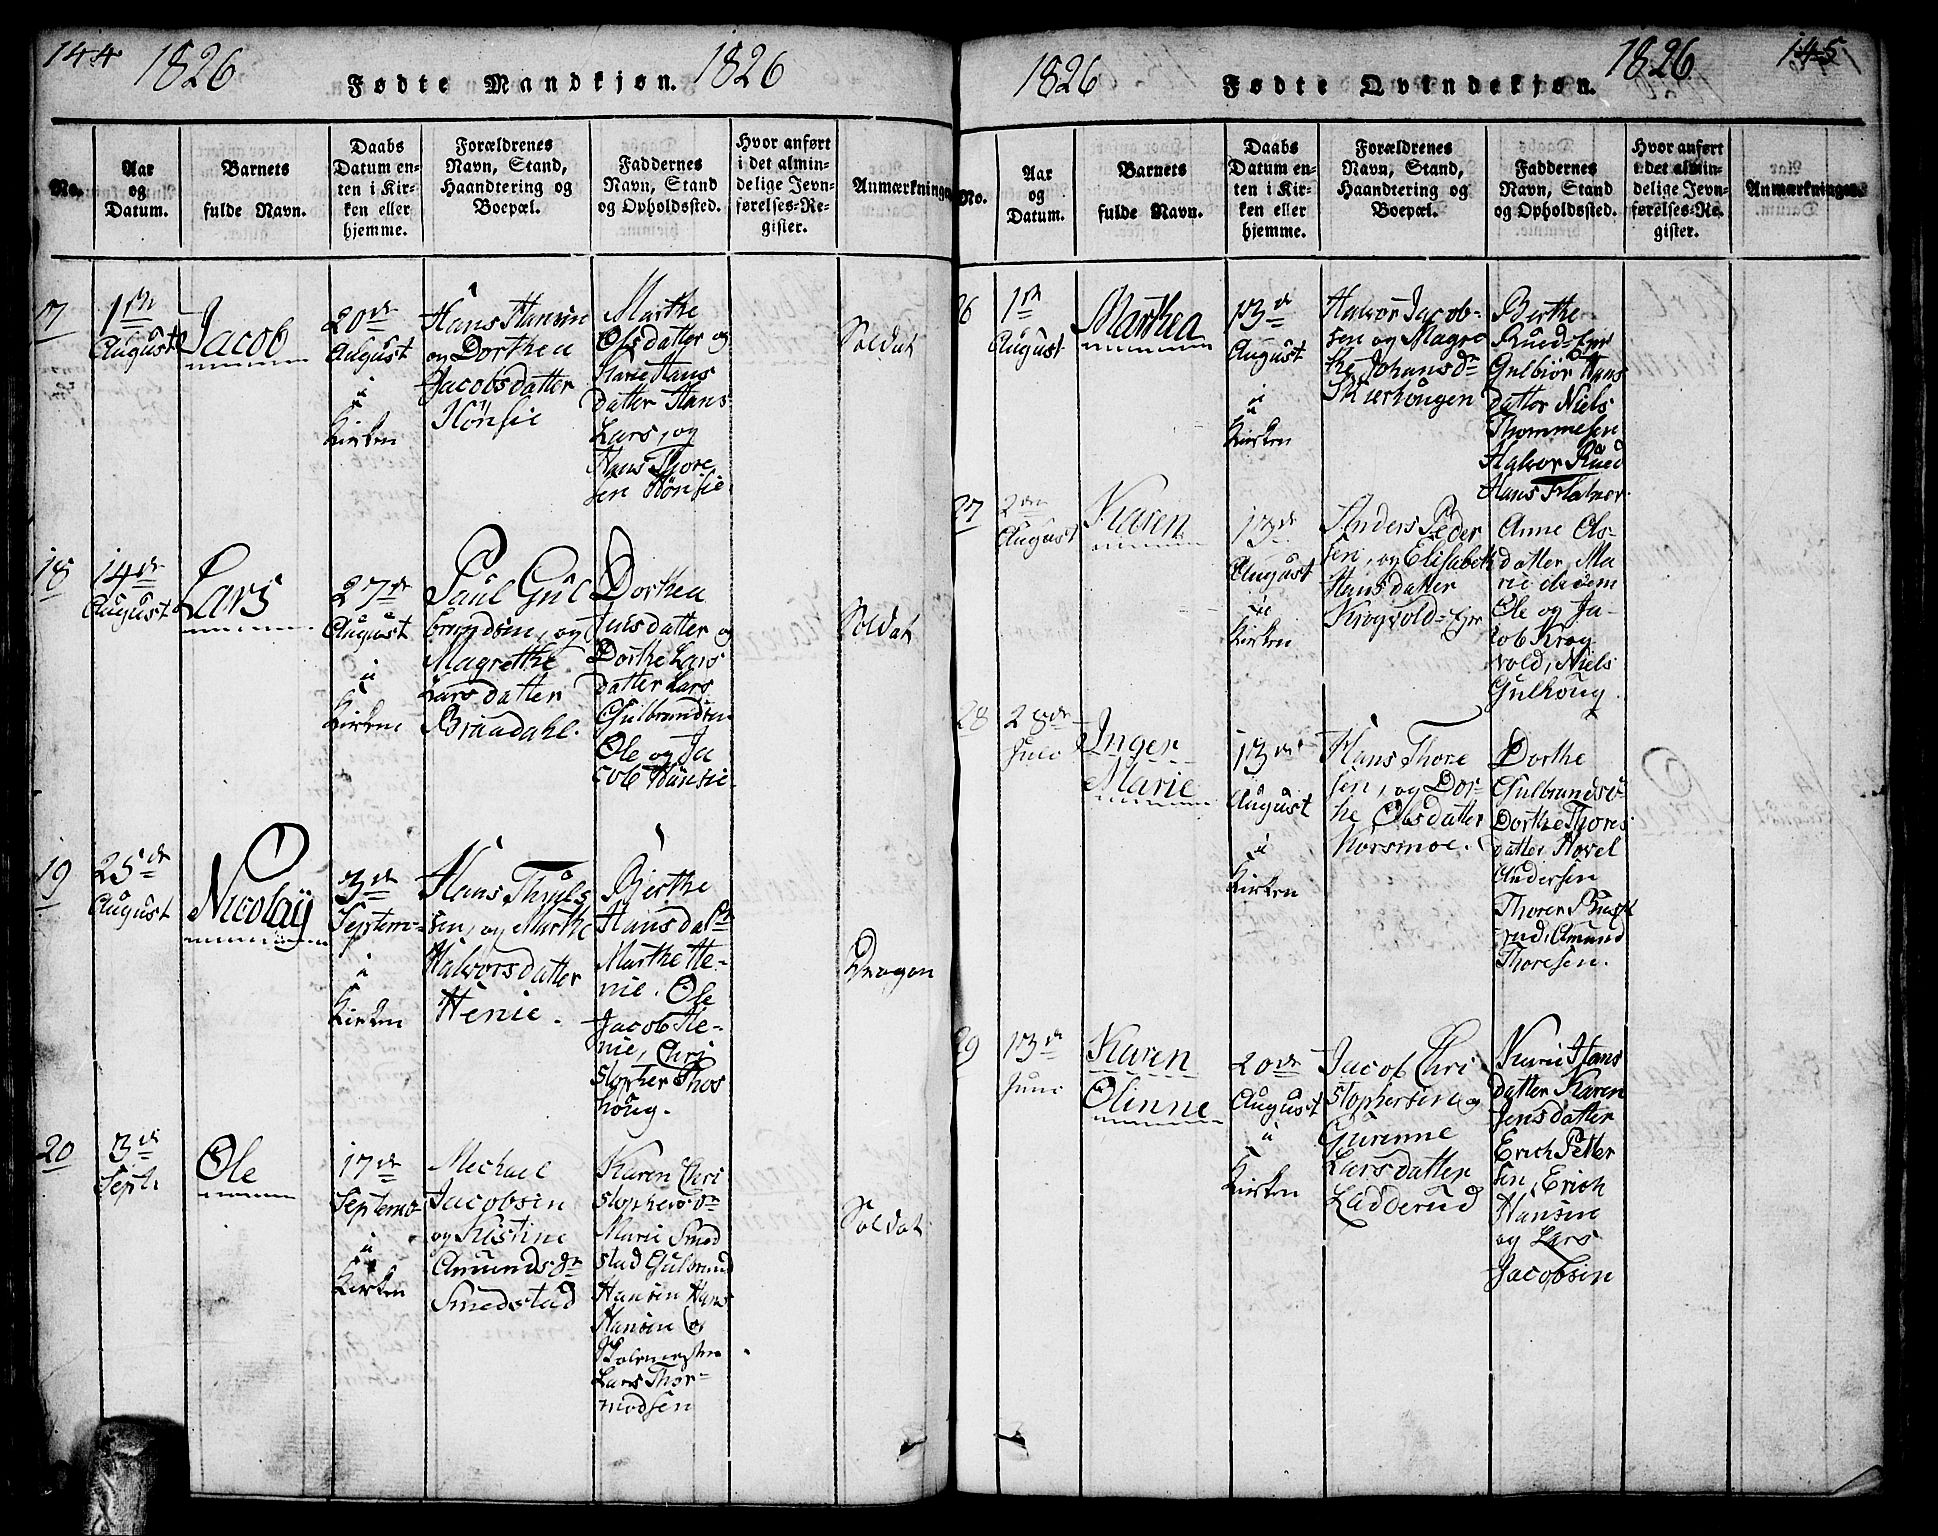 144 1826 1826
Fødte Mandkjøn.
No.
Aar
og
Datum.
Barnets
fulde Navn.
Daabs
Datum en-
ten i Kir-
ken eller
hjemme.
Forældrenes
Navn, Stand,
Haandtering og
Boepæl.
Faddernes
Navn, Stand
og Opholdssted.
Hvor anført
i det almin-
delige Jevn-
førelses-Re-
gister.
Anmærkninger
1ste
August
Jacob
20de
August
i
Kirken
Hans Hansen
og Dorthea
Jacobsdatter
Hønsie
Marthe
Olsdatter og
Marie Hans
datter Hans
Lars, og
Hans Thore
sen Hønsie
Soldat
18
14de
August
Lars
27de
August
i
Kirken
Paul Gul
brandsen, og
Magrethe
Larsdatter
Braadahl.
Dorthea
Jensdatter og
Dorthe Lars
datter Lars
Gulbrandsen
Ole og Ja
cob Hønsie
Soldat
19
25de
August
Nicolay
3de
Septem-
i
Kirken
Hans Thruls
sen, og Marthe
Halvorsdatter
Henie.
Berthe
Hansdatr
Marthe He-
nie. Ole
Jacob He-
nie, Chri
stopher Thos
houg.
Dragon
20
3de
Septr
Ole
17de
Septemb
i
Kirken
Mechael
Jacobsen
og Kistine
Amundsdr
Smedstad
Karen Chri
stophersdr
Marie Smed
stad Gulbrand
Hansen Hans
Hansen og
Skolemester
Lars Thor-
modsen
Soldat
1826 1826 145
Fødte Qvindekjøn.
No.
Aar
og
Datum.
Barnets
fulde Navn.
Daabs
Datum en-
ten i Kir-
ken eller
hjemme.
Forældrenes
Navn, Stand,
Haandtering og
Boepæl.
Faddernes
Navn, Stand
og Opholdssted.
Hvor anført
i det almin-
delige Jevn-
førelses-Re-
gister.
Anmærkninger
26
1ste
August
Marthea
13de
August
i
Kirken
Halvor Jacob-
sen og Magre
the Johansdr
Skierhougen
Berthe
Rued-Eje
Gulbiør Hans
datter Niels
Thommesen
Halvor Rued
Hans
27
2den
August
Karen
13de
August
i
Kirken
Anders Peder
sen, og Elisabeth
Hansdatter
Krogvold-Eje
Anne Ols-
datter, Ma
rie
Ole og Ja-
cob Krog
vold, Niels
Gulhoug.
28
28de
Juli
Inger
Marie
13de
August
i
Kirken
Hans Thore
sen, og Dor-
the Olsdatter
Korsmoe.
Dorthe
Gulbrandsd
Dorthe Thores
datter Hovel
Andersen
Thorer Bust
rud, Amund
Thoresen.
29
13de
Juni
Karen
Olinne
20de
August
i
Kirken
Jacob Chri
stophersen og
Gurinne
Larsdatter
Ladderud
Karie Hans
datter Karen
Jensdatter
Erich Petter
sen, Erich
Hansen
og Lars
Jacobsen